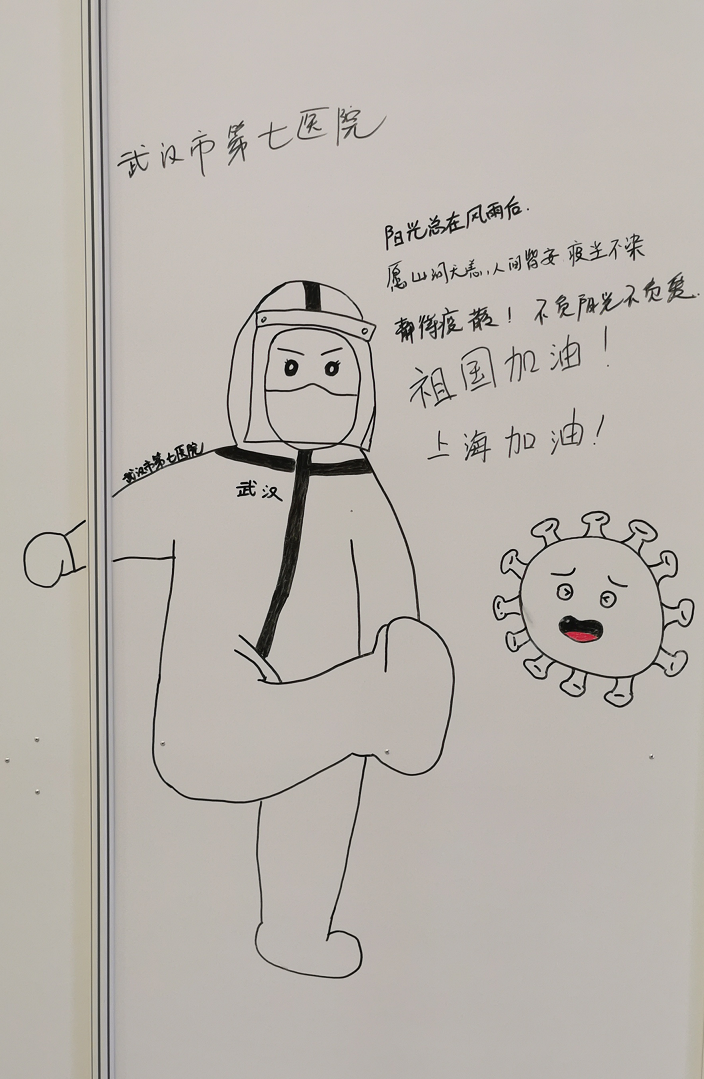 武汉市第七医院
阳光总在风雨后.
愿山河无恙,人间皆安 疫尘不染
静待疫散！不负阳光不负爱.
祖国加油！
上海加油！
武汉市第七医院
武汉